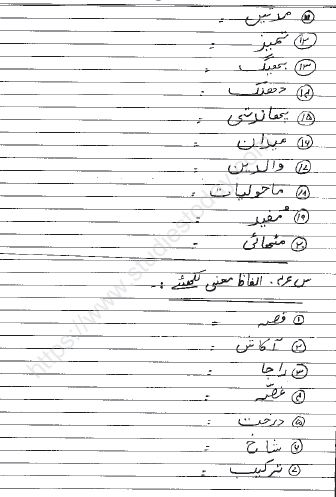 ⑪ مدتیں =
⑫ تمیز =
⑬ بھیگ =
⑭ دھنک =
⑮ پھاندتی =
⑯ میدان =
⑰ والدین =
⑱ ماحولیات =
⑲ مُفید =
⑳ مٹھائی =
س ۴. الفاظ معنی لکھئے :-
① قصہ =
② آکاش =
③ راجا =
④ غصّہ =
⑤ درخت =
⑥ شاخ =
⑦ ترکیب =
https://www.studiestoday.com